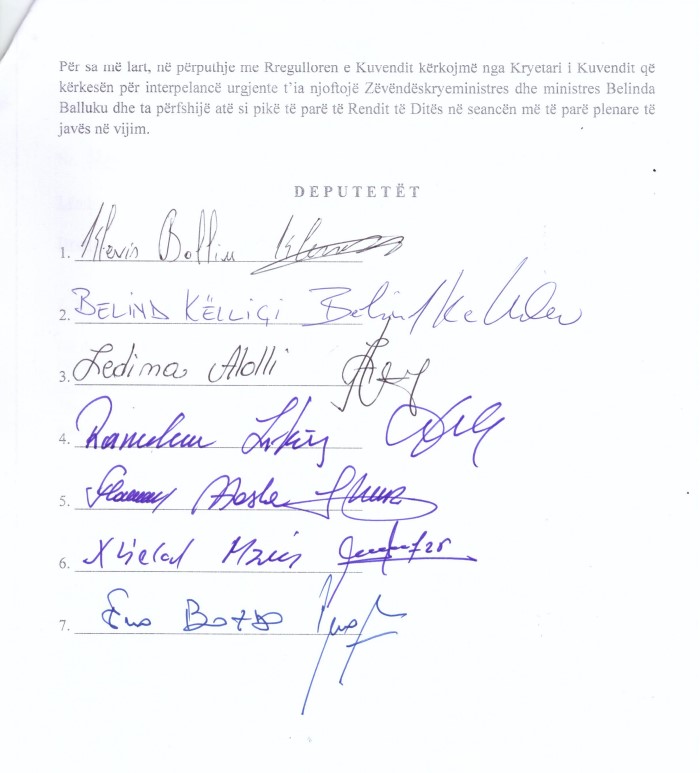 Për sa më lart, në përputhje me Rregulloren e Kuvendit kërkojmë nga Kryetari i Kuvendit që
kërkesën për interpelancë urgjente t’ia njoftojë Zëvëndëskryeministres dhe ministres Belinda
Balluku dhe ta përfshijë atë si pikë të parë të Rendit të Ditës në seancën më të parë plenare të
javës në vijim.
DEPUTETËT
1. Klevis Balliu
2. BELIND KËLLIÇI
3. Ledina Alolli
4.
5.
6. Xhelal Mziu
7. Eno Bozdo